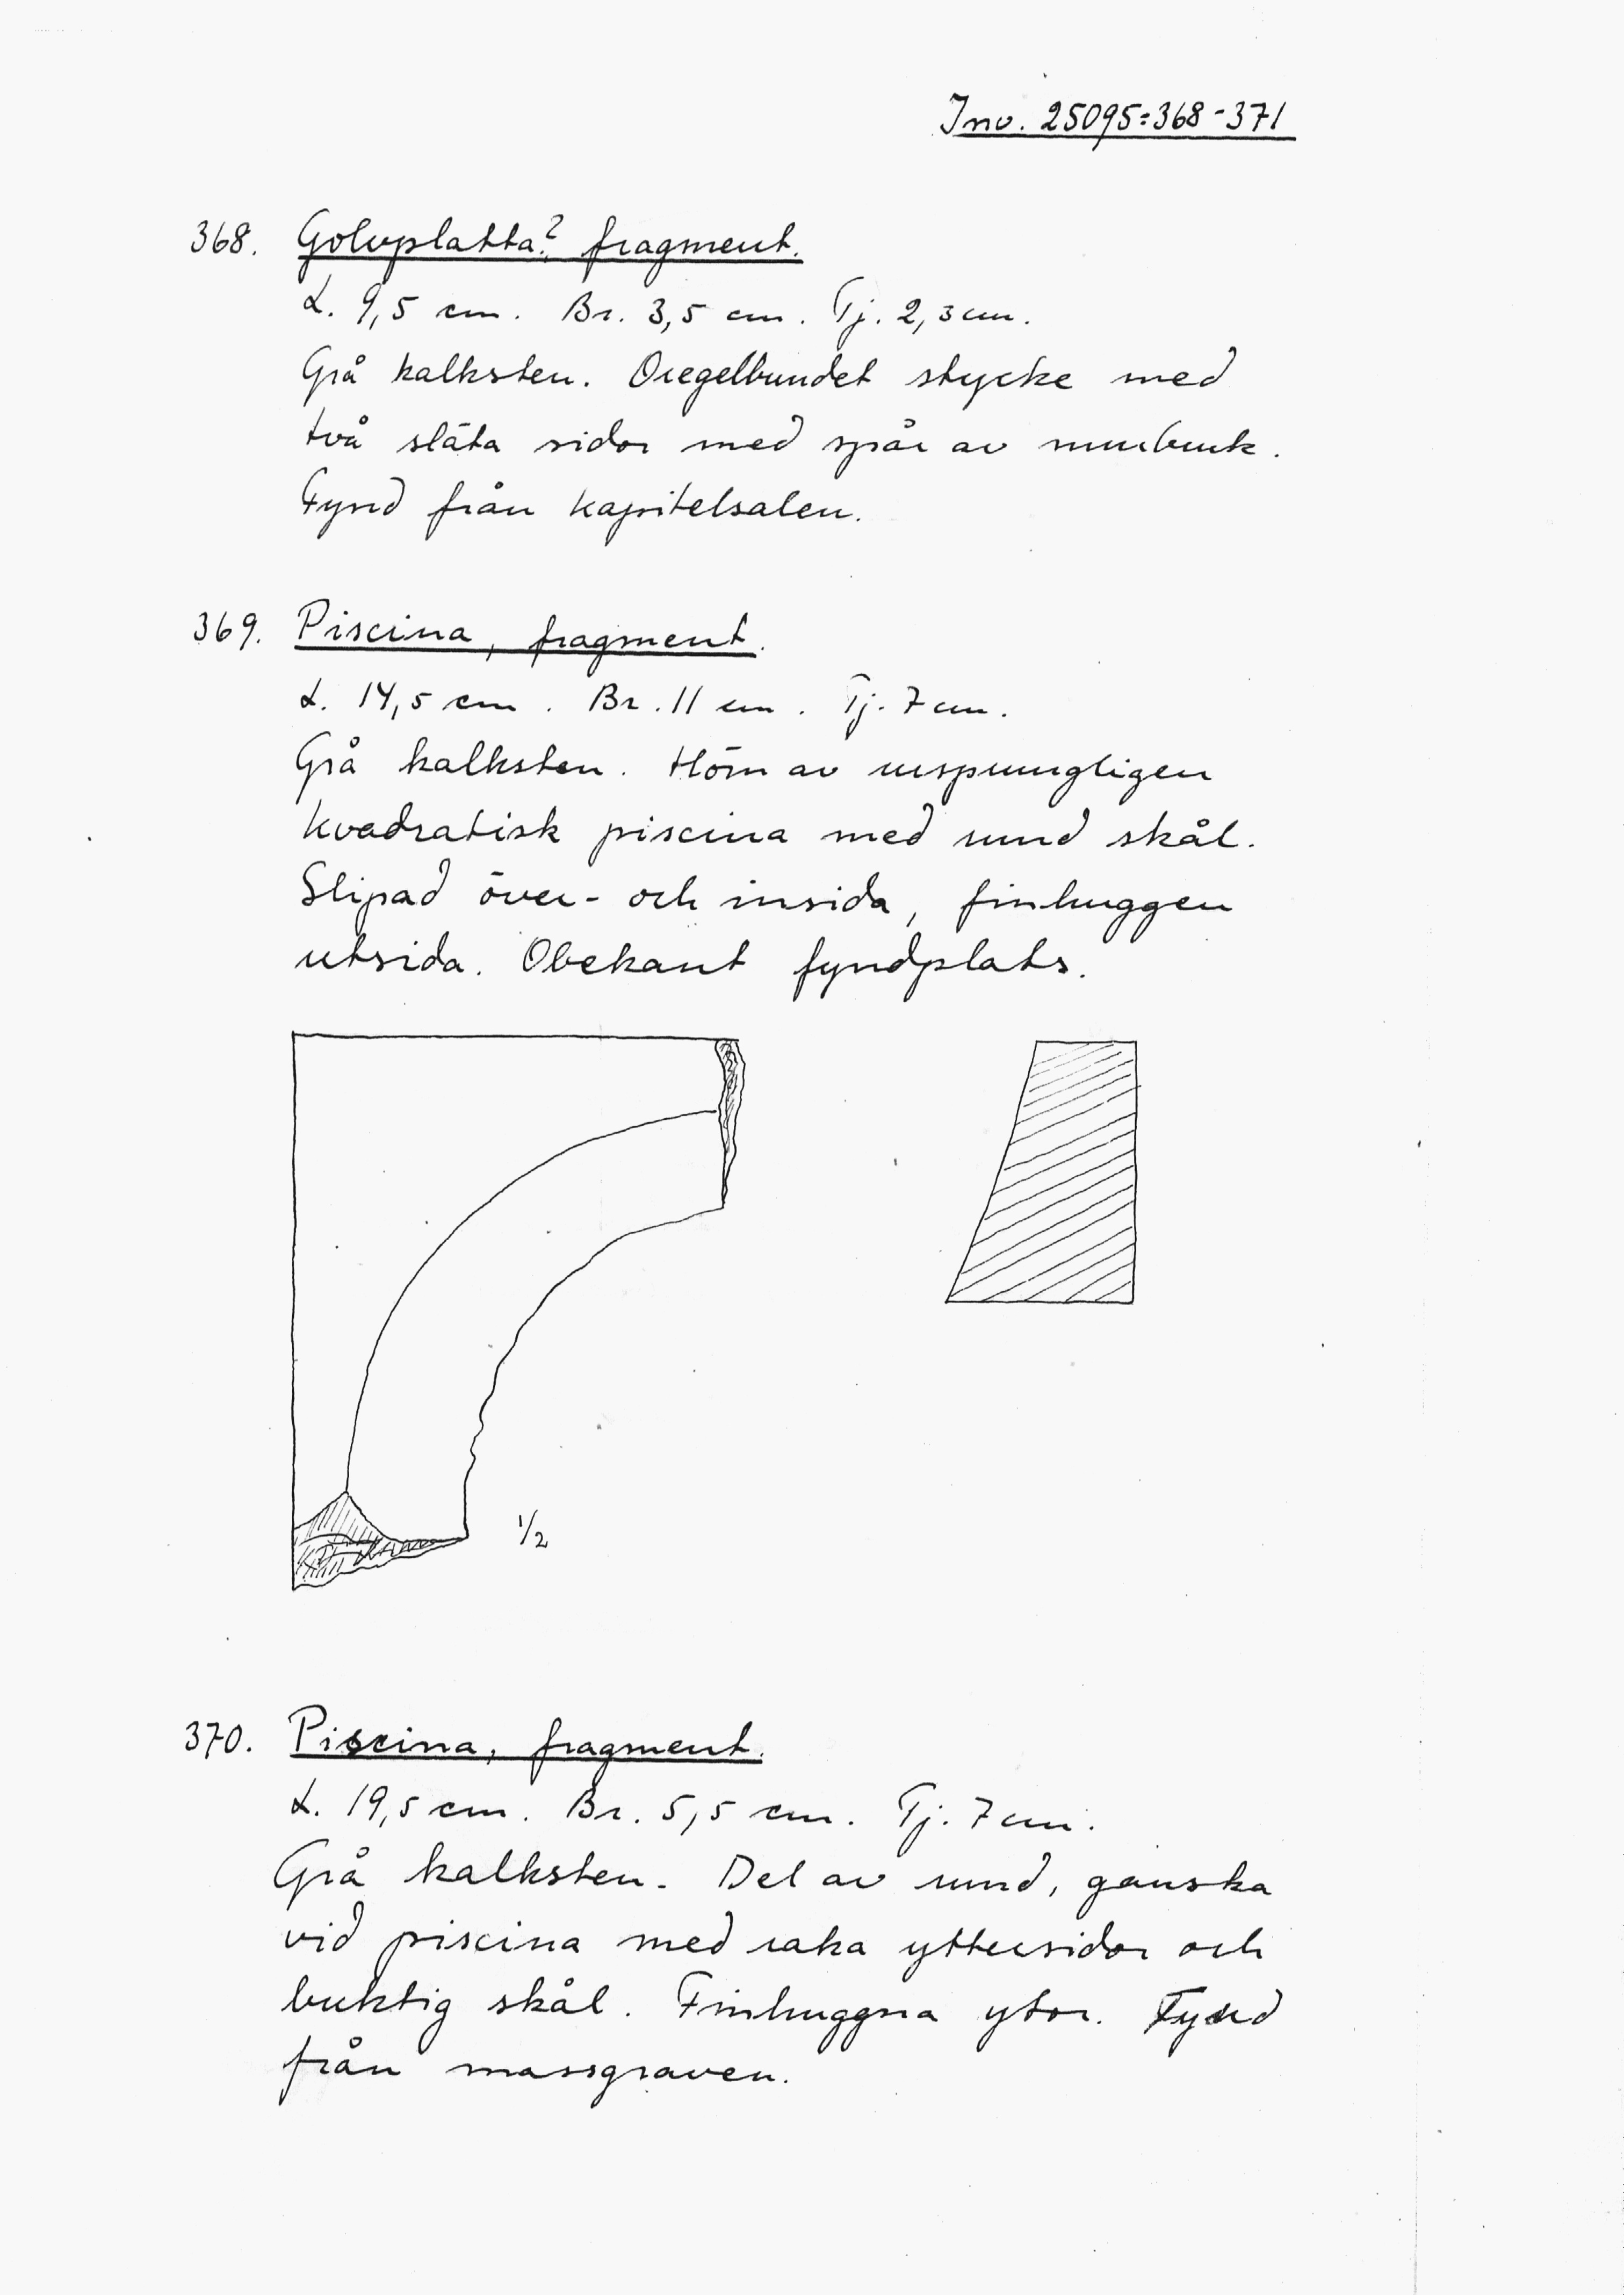 Inv. 25095:368-371
368. Golvplatta? fragment.
L. 9,5 cm. Br. 3,5 cm. Tj. 2,3 cm.
Grå kalksten. Oregelbundet stycke med
två släta sidor med spår av murbruk.
Fynd från kapitelsalen.
369. Piscina, fragment.
L. 14,5 cm. Br. 11 cm. Tj. 7 cm.
Grå kalksten. Hörn av ursprungligen
kvadratisk piscina med rund skål.
Slipad över- och insida, finhuggen
utsida. Obekant fyndplats.
1/2
370. Piscina, fragment.
L. 19,5 cm. Br. 5,5 cm. Tj. 7 cm.
Grå kalksten. Del av rund, ganska
vid piscina med raka yttersidor och
buktig skål. Finhuggna ytor. Fynd
från massgraven.